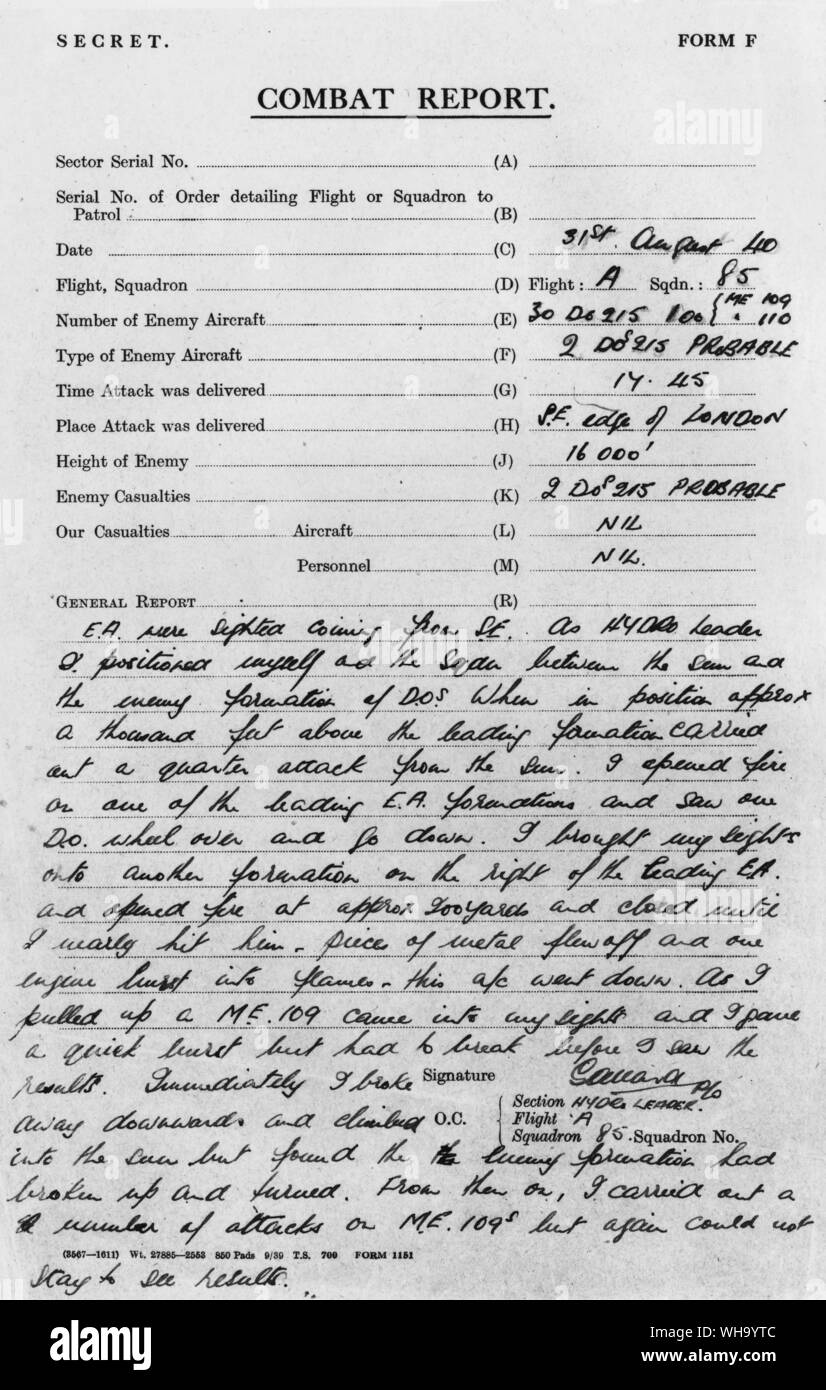 SECRET. FORM F
COMBAT REPORT.
Sector Serial No. (A)
Serial No. of Order detailing Flight or Squadron to
Patrol (B)
Date (C) 31st. August 40
Flight, Squadron (D) Flight: A Sqdn.: 85
Number of Enemy Aircraft (E) 30 Do 215 100 { ME 109
" 110
Type of Enemy Aircraft (F) 2 Dos 215 PROBABLE
Time Attack was delivered (G) 17.45
Place Attack was delivered (H) S.E. edge of LONDON
Height of Enemy (J) 16 000'
Enemy Casualties (K) 2 Dos 215 PROBABLE
Our Casualties Aircraft (L) NIL
Personnel (M) NIL.
GENERAL REPORT : (R)
E.A. were sighted coming from S.E. As HYDRO Leader
I positioned myself and the Sqdn between the sun and
the enemy formation of D.Os When in position approx
a thousand feet above the leading formation carried
out a quarter attack from the sun. I opened fire
on one of the leading E.A. formations and saw one
D.O. wheel over and go down. I brought my sights
onto another formation on the right of the leading E.A.
and opened fire at approx 200 yards and closed until
I nearly hit him - pieces of metal flew off and one
engine burst into flames - this a/c went down. As I
pulled up a M.E. 109 came into my sights and I gave
a quick burst but had to break before I saw the
results. Immediately I broke Signature P/O
away downwards and climbed O.C. { Section HYDRO LEADER.
Flight A
Squadron 85. Squadron No.
into the sun but found the the enemy formation had
broken up and turned. From then on, I carried out a
number of attacks on M.E. 109s but again could not
(3567—1611) Wt. 27885—2553 850 Pads 9/39 T.S. 700 FORM 1151
stay to see results.
alamy
a
alamy
Image ID: WH9YTC
www.alamy.com